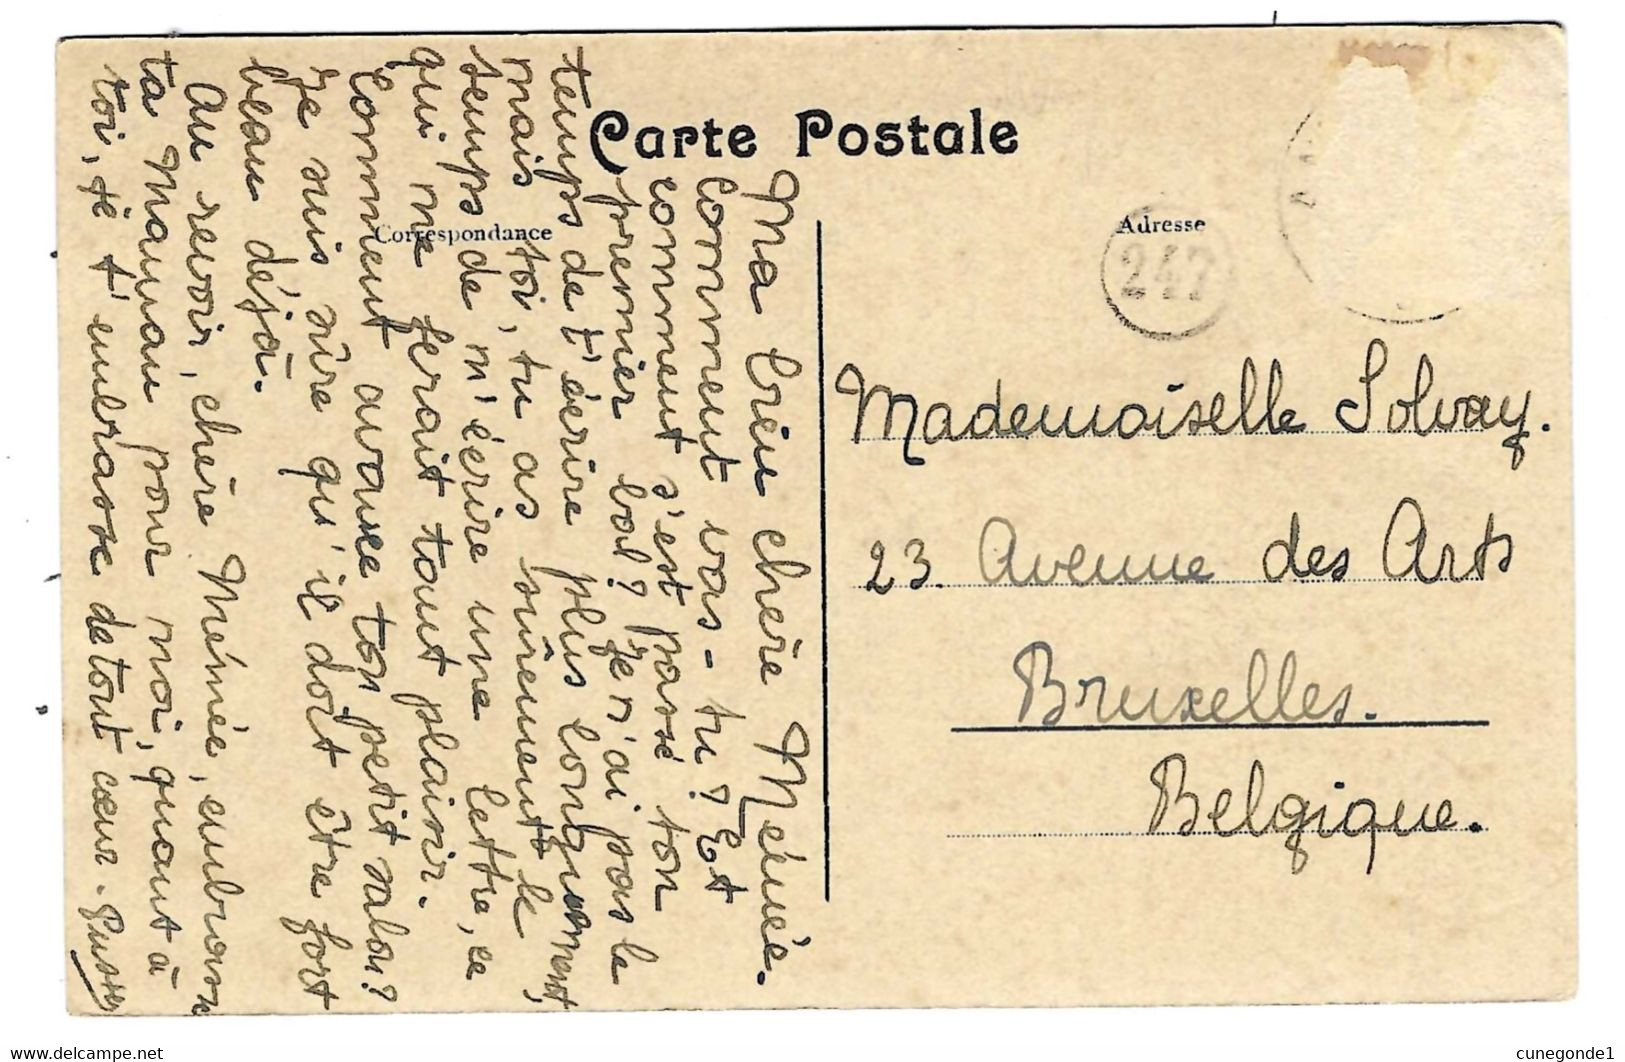 Carte Postale
Correspondance
Adresse
247
Ma bien chère Mémée.
Comment vas-tu? Et
comment s'est passé ton
premier bal? Je n'ai pas le
temps de t'écrire plus longuement,
mais toi, tu as sûrement le
temps de m'écrire une lettre, ce
qui me ferait tout plaisir.
Comment avance ton petit salon?
Je suis sûre qu'il doit être fort
beau déjà.
Au revoir, chère Mémée, embrasse
ta Maman pour moi, quant à
toi, je t'embrasse de tout cœur.
Mademoiselle Solvay.
23. Avenue des Arts
Bruxelles.
Belgique.
www.delcampe.net
cunegonde1